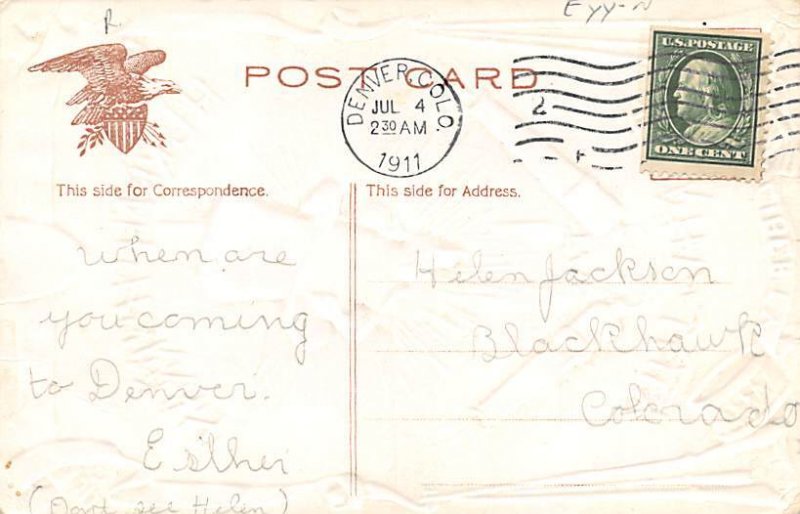 R.
Eyy-N
POST CARD
DENVER, COLO.
JUL 4
2 30 AM
1911
2
U.S. POSTAGE
ONE CENT
This side for Correspondence.
This side for Address.
When are
you coming
to Denver.
Esther
( see Helen)
Helen Jackson
Blackhawk
Colorado